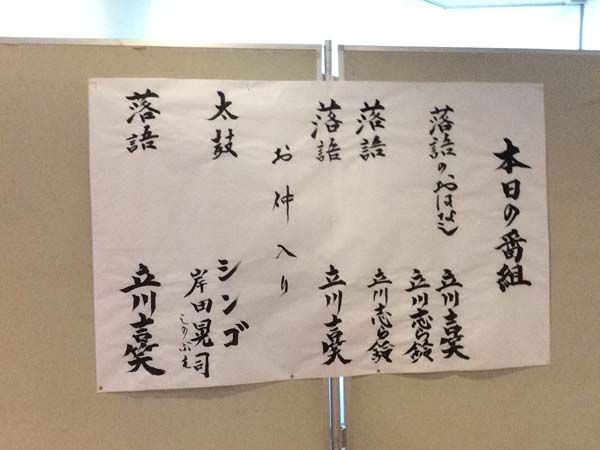 本日の番組
落語のおはなし 立川吉笑
立川志ら鈴
落語 立川志ら鈴
落語 立川吉笑
お仲入り
太鼓 シンゴ
岸田晃司
しのぶ亭
落語 立川吉笑